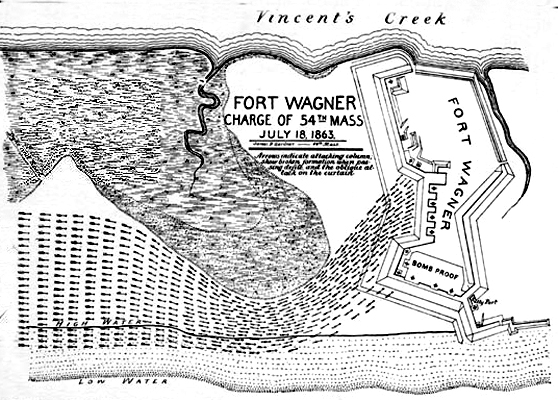 Vincent's Creek
FORT WAGNER
CHARGE OF 54TH MASS
JULY 18, 1863.
Arrows indicate attacking column,
show broken formation when pas
sing defile, and the oblique at-
tack on the curtain
FORT WAGNER
BOMB PROOF
Sally Port
HIGH WATER
LOW WATER